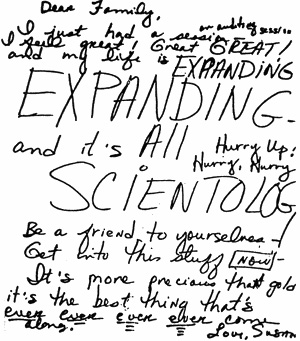 Dear Family,
an auditing session
I just had a session
I feel great! Great GREAT!
and my life is EXPANDING
EXPANDING -
and it's All Hurry Up!
Hurry, Hurry
SCIENTOLOG
Be a friend to yourselves -
Get into this stuff NOW -
It's more precious than gold
it's the best thing that's
ever ever ever ever come
along. Love, Susan